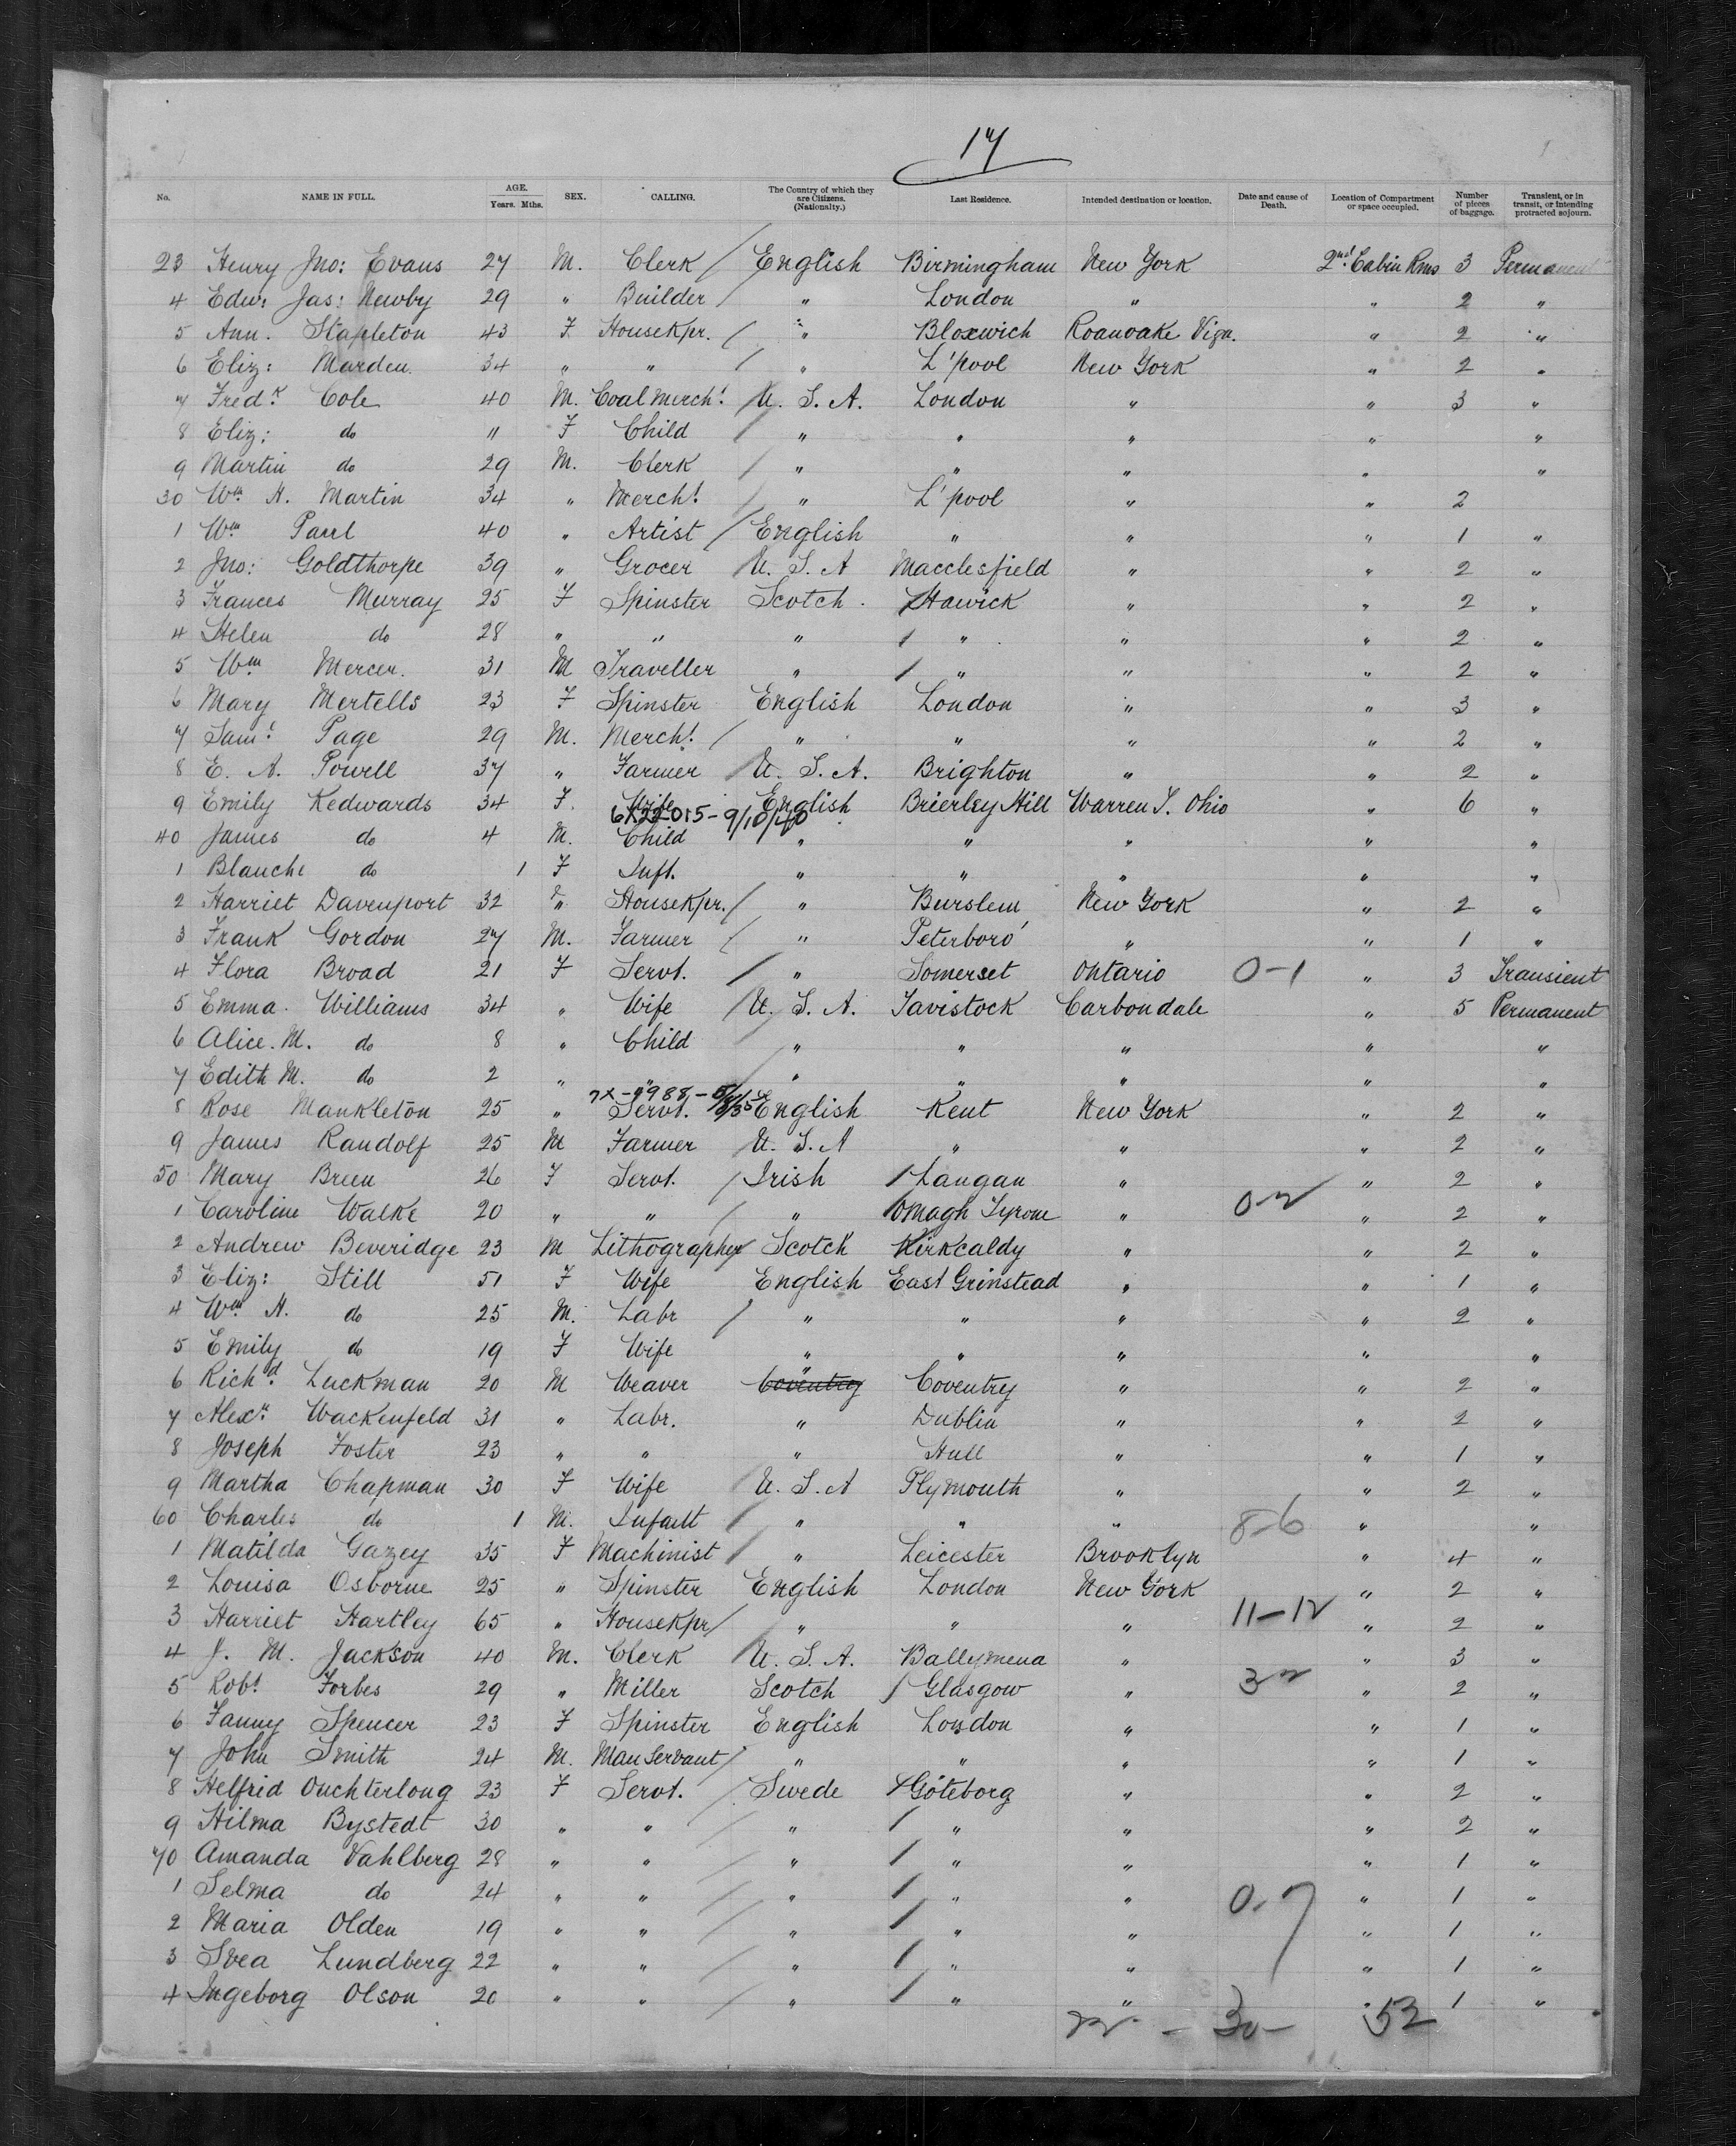 17
No. NAME IN FULL. AGE. Years. Mths. SEX. CALLING. The Country of which they are Citizens. (Nationalty.) Last Residence. Intended destination or location. Date and cause of Death. Location of Compartment or space occupied. Number of pieces of baggage. Transient, or in transit, or intending protracted sojourn.
23 Henry Jno: Evans 27 M. Clerk / English Birmingham New York 2nd Cabin Rms 3 Permanent
4 Edw: Jas: Newby 29 " Builder / " London " " 2 "
5 Ann. Stapleton 43 F Housekpr. / " Bloxwich Roanoake Vign. " 2 "
6 Eliz: Marden. 34 " " / " L'pool New York " 2 "
7 Fredk Cole 40 M. Coal Mercht. / U. S. A. London " " 3 "
8 Eliz: do 11 F Child / " " " " "
9 Martin do 29 M. Clerk / " " " " "
30 Wm H. Martin 34 " Mercht. / " L'pool " " 2
1 Wm Paul 40 " Artist / English " " " 1 "
2 Jno: Goldthorpe 39 " Grocer / U. S. A Macclesfield " " 2 "
3 Frances Murray 25 F Spinster Scotch. / Hawick " " 2 "
4 Helen do 28 " " " / " " " 2 "
5 Wm Mercer. 31 M Traveller " / " " " 2 "
6 Mary Mertells 23 F Spinster English London " " 3 "
7 Saml Page 29 M. Mercht. / " " " " 2 "
8 E. A. Powell 37 " Farmer / U. S. A. Brighton " " 2 "
9 Emily Kedwards 34 F. Wife English Brierley Hill Warren T. Ohio " 6 "
6X22015-9/10/40
40 James do 4 M. Child " " " " "
1 Blanche do 1 F Inft. " " " " "
2 Harriet Davenport 32 " Housekpr. / " Burslem New York " 2 "
3 Frank Gordon 27 M. Farmer / " Peterboro' " " 1 "
4 Flora Broad 21 F Servt. / " Somerset Ontario 0-1 " 3 Transient
5 Emma. Williams 34 " Wife / U. S. A. Tavistock Carbondale " 5 Permanent
6 Alice. M. do 8 " Child " " " " "
7 Edith M. do 2 " " " " " " "
8 Rose Mankleton 25 " Servt. English Kent New York " 2 "
9 James Randolf 25 M Farmer / U. S. A " " " 2 "
50 Mary Breen 26 F Servt. / Irish / Langan " " 2 "
1 Caroline Walke 20 " " / " / Omagh Tyrone " 0-2 " 2 "
2 Andrew Beveridge 23 M Lithographer / Scotch / Kirkcaldy " " 2 "
3 Eliz: Still 51 F Wife English East Grinstead " " 1 "
4 Wm H. do 25 M. Labr / " " " " 2 "
5 Emily do 19 F Wife " " " " "
6 Richd. Luckman 20 M Weaver " Coventry Coventry " " 2 "
7 Alexr. Wackenfeld 31 " Labr. " Dublin " " 2 "
8 Joseph Foster 23 " " " Hull " " 1 "
9 Martha Chapman 30 F Wife / U. S. A Plymouth " " 2 "
60 Charles do 1 M. Infant / " " " 8-6 " "
1 Matilda Gazey 35 F Machinist / " Leicester Brooklyn " 4 "
2 Louisa Osborne 25 " Spinster English London New York " 2 "
3 Harriet Hartley 65 " Housekpr / " " " 11-12 " 2 "
4 J. M. Jackson 40 M. Clerk / U. S. A. Ballymena " " 3 "
5 Robt Forbes 29 " Miller Scotch / Glasgow " 32 " 2 "
6 Fanny Spencer 23 F Spinster English London " " 1 "
7 John Smith 24 M. Man Servant / " " " " 1 "
8 Helfrid Ouchterlong 23 F Servt. / Swede / Göteborg " " 2 "
9 Hilma Bystedt 30 " " / " / " " " 2 "
70 Amanda Vahlberg 28 " " / " / " " " 1 "
1 Selma do 24 " " / " / " " 0-7 " 1 "
2 Maria Olden 19 " " / " / " " " 1 "
3 Svea Lundberg 22 " " / " / " " " 1 "
4 Ingeborg Olson 20 " " / " / " " " 1 "
22 - 30 - 52